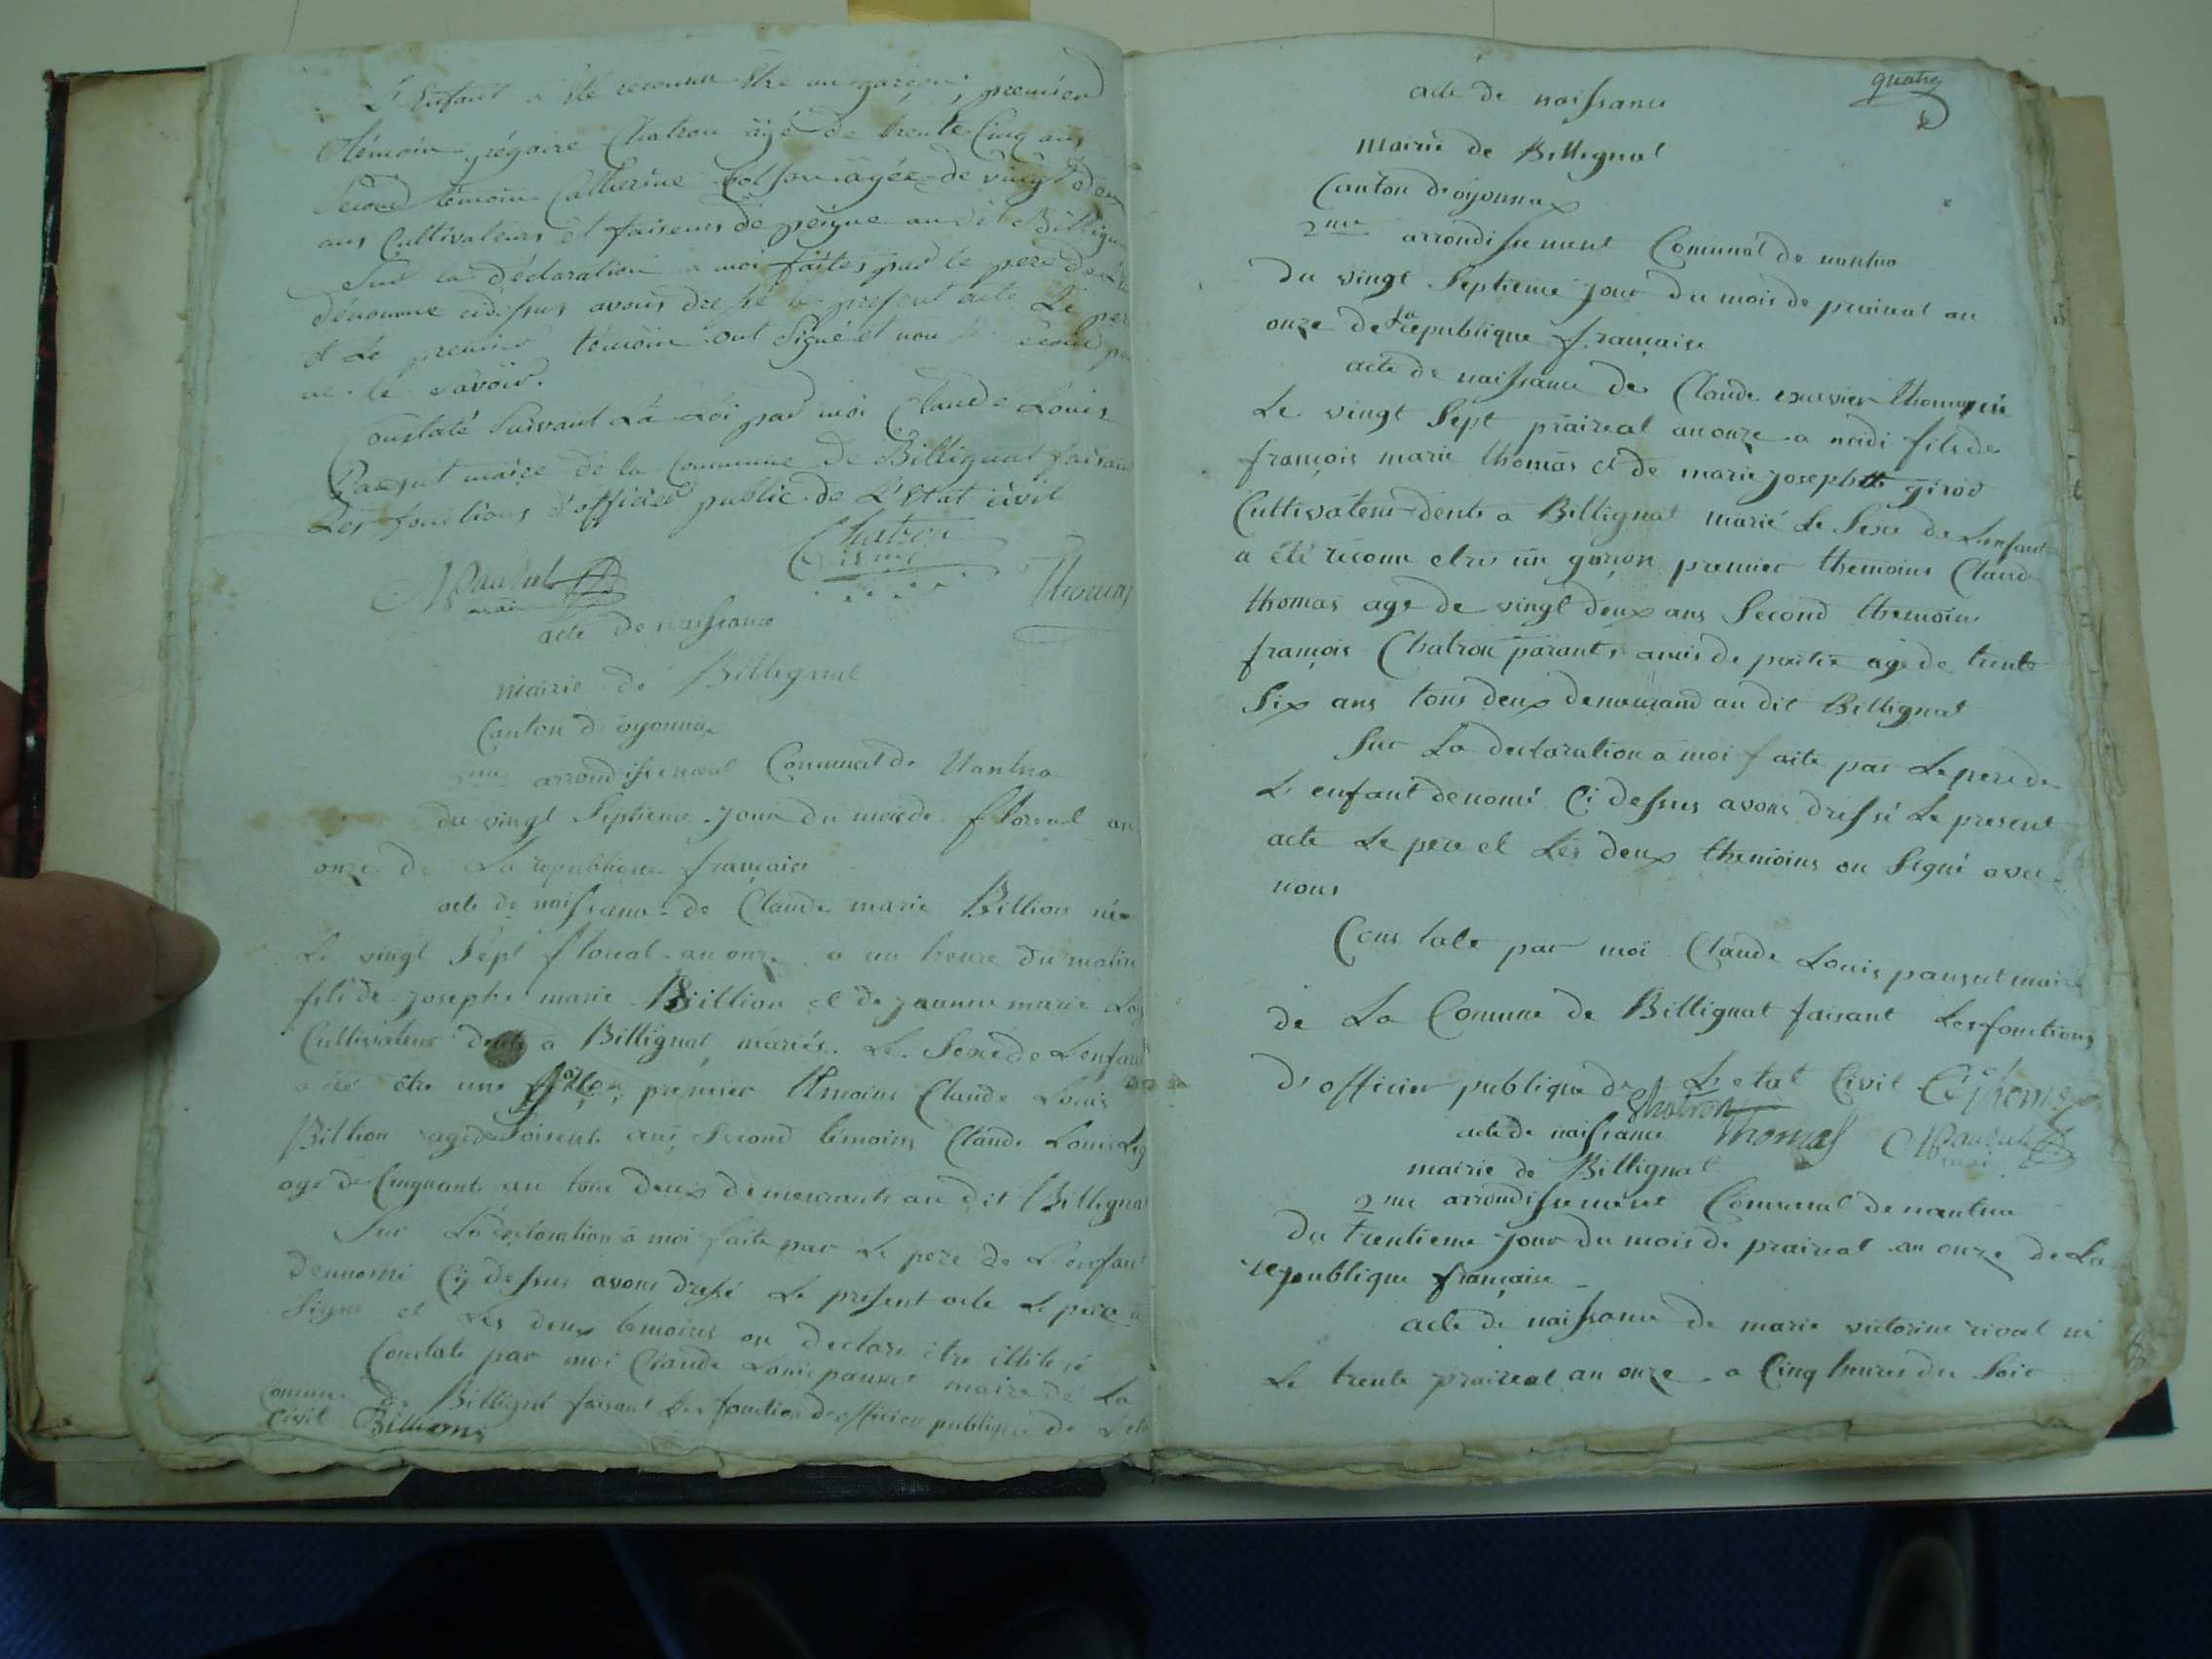 L'Enfant a été reconnu être un garçon, premier
témoin grégoire Chatron âgé de trente Cinq ans
Second témoin Catherine âgée de vingt deux
ans Cultivateurs et faiseurs de peigne au dit Billigna
Sur la déclaration à moi faites par le pere de
dénommé cidessus avons dressé le present acte Le per
et Le premier témoin ont Signé et non le Second p
ne le savoir.
Constaté Suivant La Loi par moi Claude Louis
Pansut maire de la Commune de Billignat faisant
Les fonctions d'officier public de L'Etat civil
Chatron
Pansut
maire
Thomas
acte de naissance
mairie de Billignat
Canton d'oyonnax
2me arrondissement Communal de Nantua
du vingt Septieme jour du mois de floreal an
onze de La republique francaise
acte de naissance de Claude marie Billion née
Le vingt Sept floreal an onze a un heure du matin
fils de josephe marie Billion et de jeanne marie
Cultivateur a Billignat mariés. Le Sexe de Lenfant
a été être une fille, premier témoins Claude Louis
Billion age de Soisente ans Second témoins Claude Louis
age de Cinquante an tous deux demeurants au dit Billignat
Sur La declaration a moi faite par Le pere de L'enfant
dennomé Cy dessus avons dressé Le present acte Le pere a
Signe et Les deux témoins on declare être
Constate par moi Claude Louis pansut maire de La
Comune de Billignat faisant Les fonction d'officier publique de L'eta
Civil Billion
quatre
acte de naissance
Mairie de Billignat
Canton d'oyonnax
2me arrondissement Comunal de nantua
Du vingt Septieme jour du mois de prairial an
onze de la republique francaise
acte de naissance de Claude exavier thomas né
Le vingt Sept praireal an onze a midi fils de
françois marie thomas et de marie josephtte girod
Cultivateur a Billignat marié Le Sexe de Lenfant
a été reconu etre un garçon premier themoins Claude
thomas age de vingt deux ans Second themoins
françois Chatron parants amis de partie age de trente
Six ans tous deux demeurand au dit Billignat
Sur La declaration a moi faite par Le pere de
L'enfant denomé Ci dessus avons dressé Le present
acte Le pere et Les deux themoins on Signé avec
nous
Constate par moi Claude Louis pansut maire
de La Comune de Billignat faisant Les fonctions
d'officier publique de L'etat Civil C thomas
Chatron Thomas Pansut
acte de naissance
mairie de Billignat
2me arrondissement Comunal de nantua
Du trentieme jour du mois de praireal an onze de La
republique francaise
acte de naissance de marie victorine rival né
Le trente praireal an onze a Cinq heures du Soir